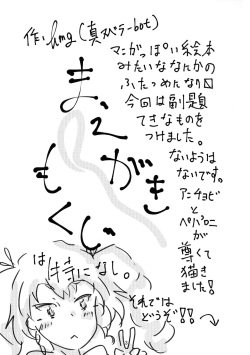 作:hmg(真スペテーbot)
マンガっぽい絵本
みたいななんかの
ふたつめんなり〼
今回は副題
てきなものを
つけました。
まえがき
もくじ
は特になし。
ないようは
ないです。
アンチョビ
と
ペパロニ
が
尊くて
描き
ました!
それでは
どうぞ!!